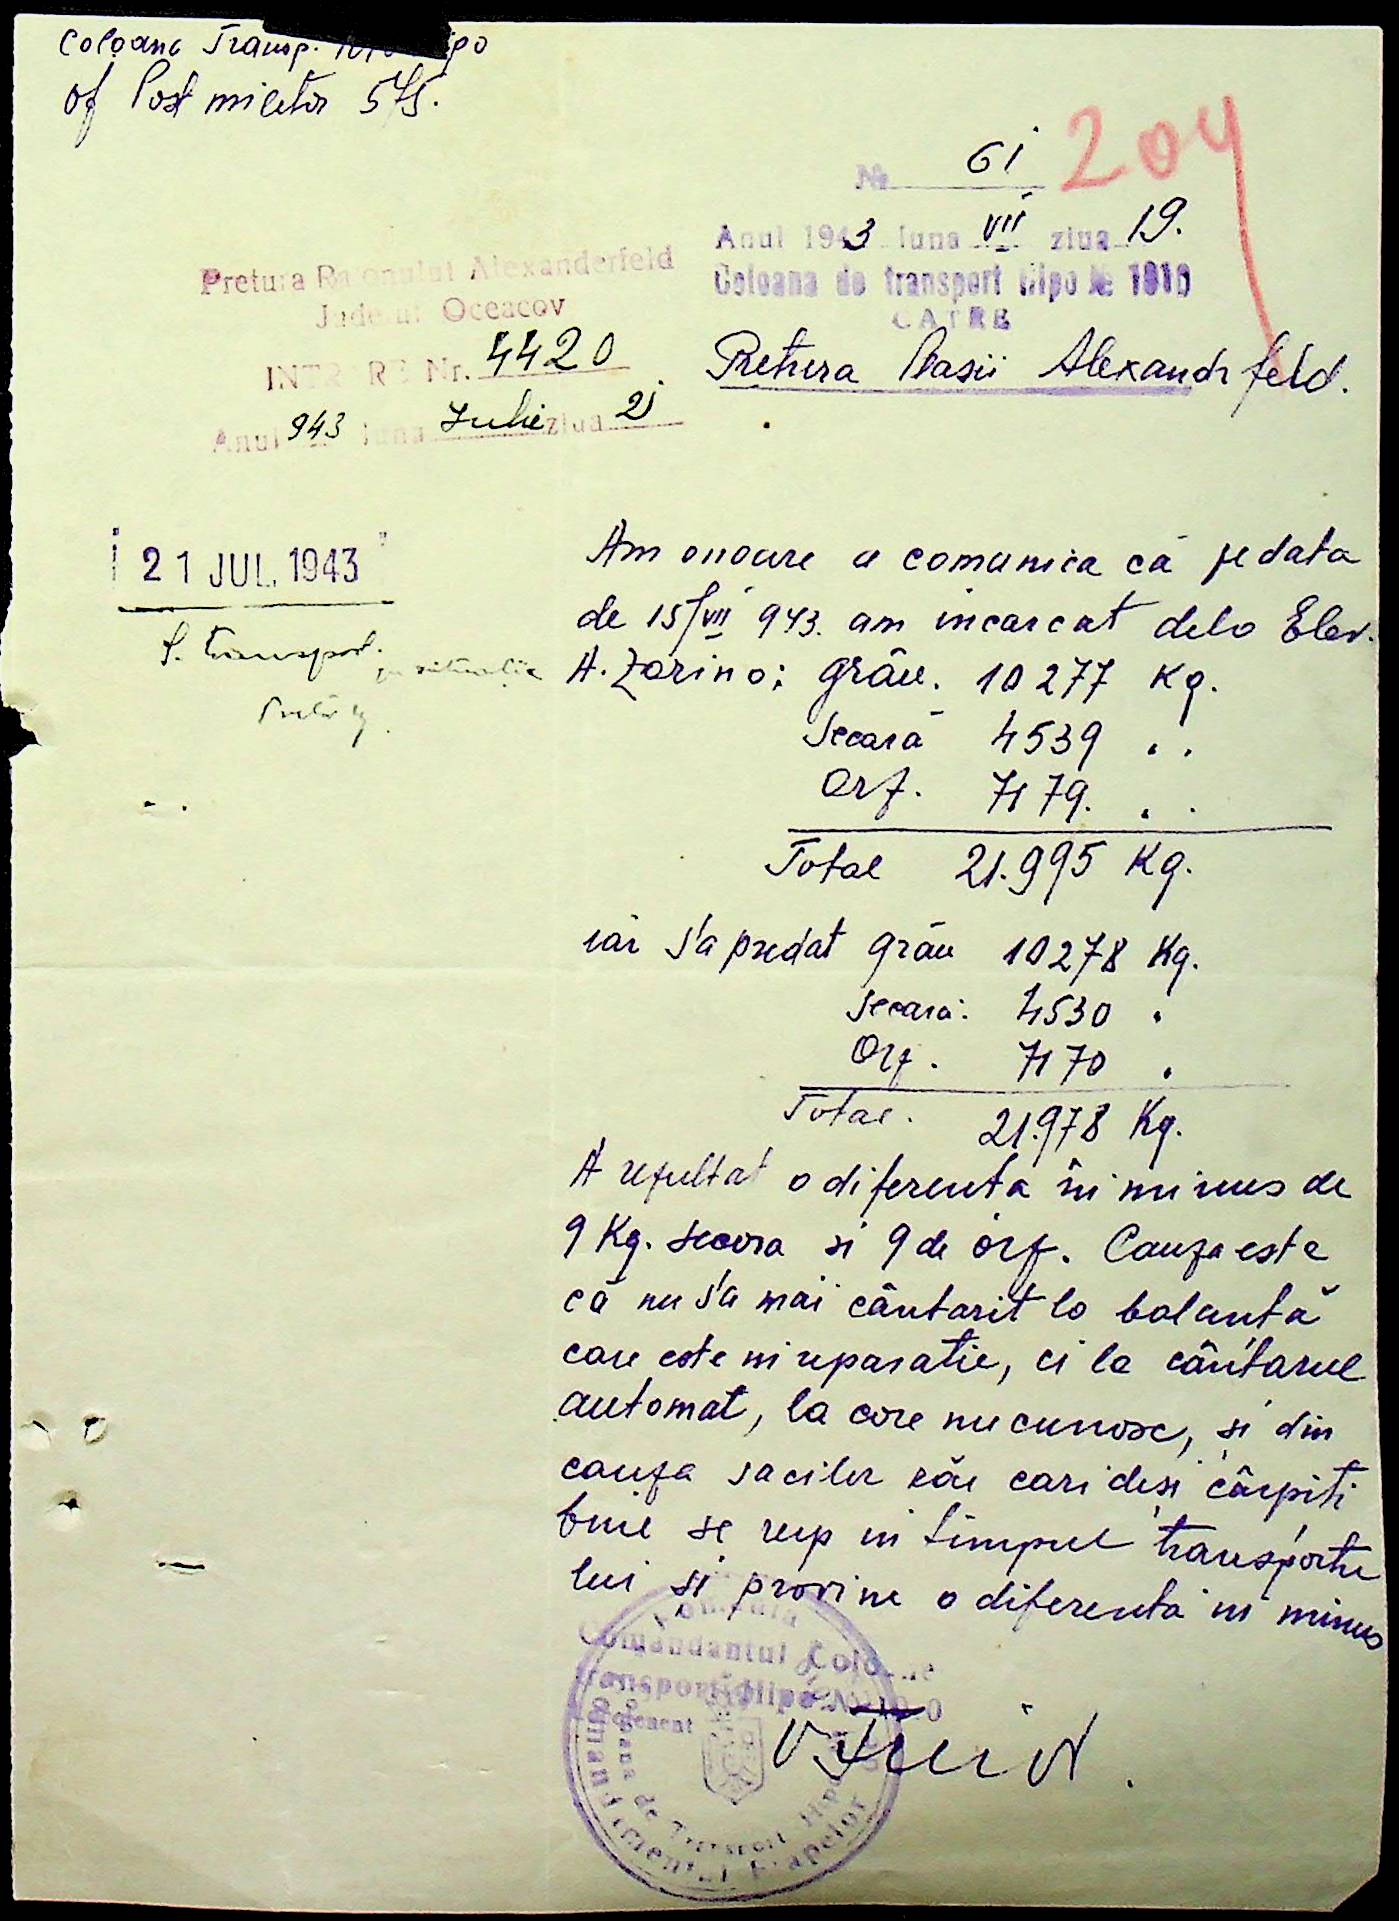 Coloana Transp. ipo
of Post militar 575.
204
№ 61
Anul 1943 luna VII ziua 19.
Coloana de transport Hipo № 1910
CATRE
Pretura Plasii Alexandrfeld.
Pretura Raionului Alexanderfeld
Judetul Oceacov
INTRARE Nr. 4420
Anul 943 luna Iulie ziua 21
21 JUL. 1943
S. transport.
Am onoare a comunica că pe data
de 15/VII 943. am incarcat dela Elev.
A. Zarino; grâu. 10277 Kg.
Secară 4539 " "
Orz. 7179. " "
Total 21.995 Kg.
iar s'a predat grâu 10278 Kg.
Secară. 4530 "
Orz. 7170 "
Total. 21.978 Kg.
A rezultat o diferenta in minus de
9 Kg. secara si 9 de orz. Cauza este
că nu s'a mai cântarit la balantă
care este in reparatie, ci la cântarul
automat, la care nu cunosc, și din
cauza sacilor răi cari deși cârpiti
bine se rup in timpul transportu
lui și provine o diferenta in minus
România
Comandantul Coloanei
Transport Hipo №
Locotenent
Comandamentul Etapelor
Coloana de Transport Hipo